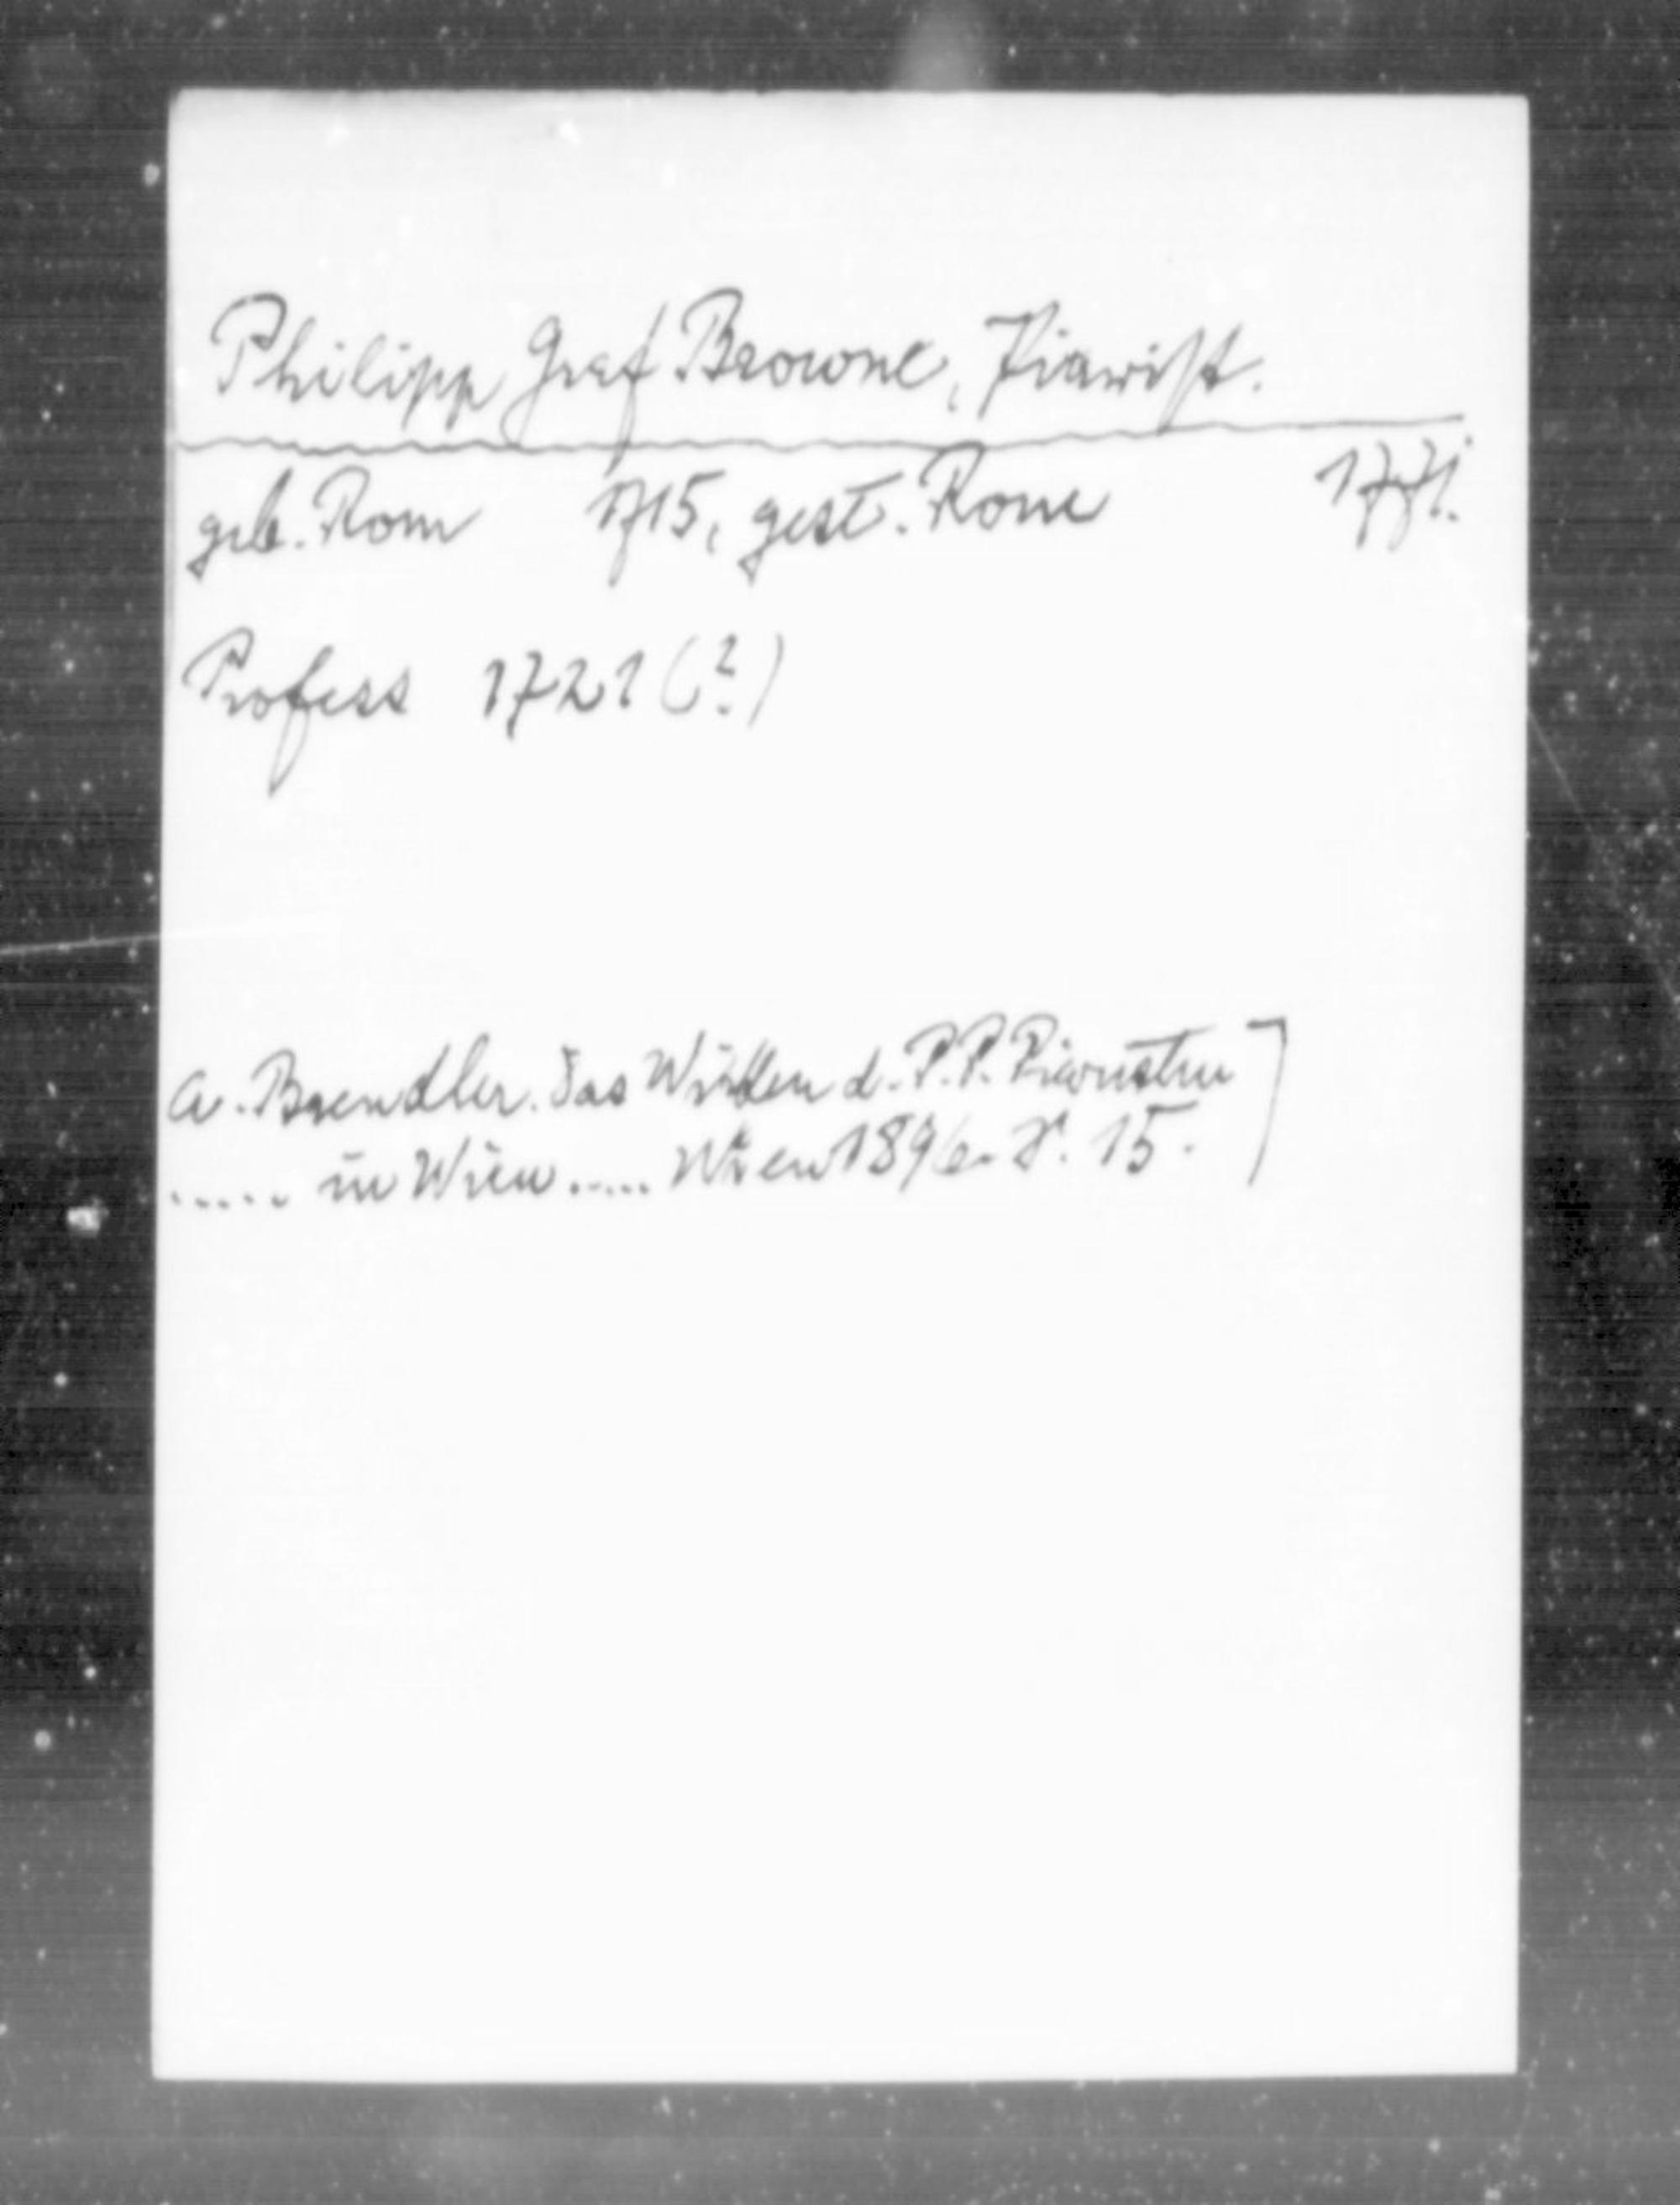 Philipp Graf Browne, Piarist.
geb. Rom 1715, gest. Rom 1771.
Profess 1721 (?)
A. Brendler. Das Wirken d. P.P. Piaristen
..... in Wien ..... Wien 1896. S. 15.]